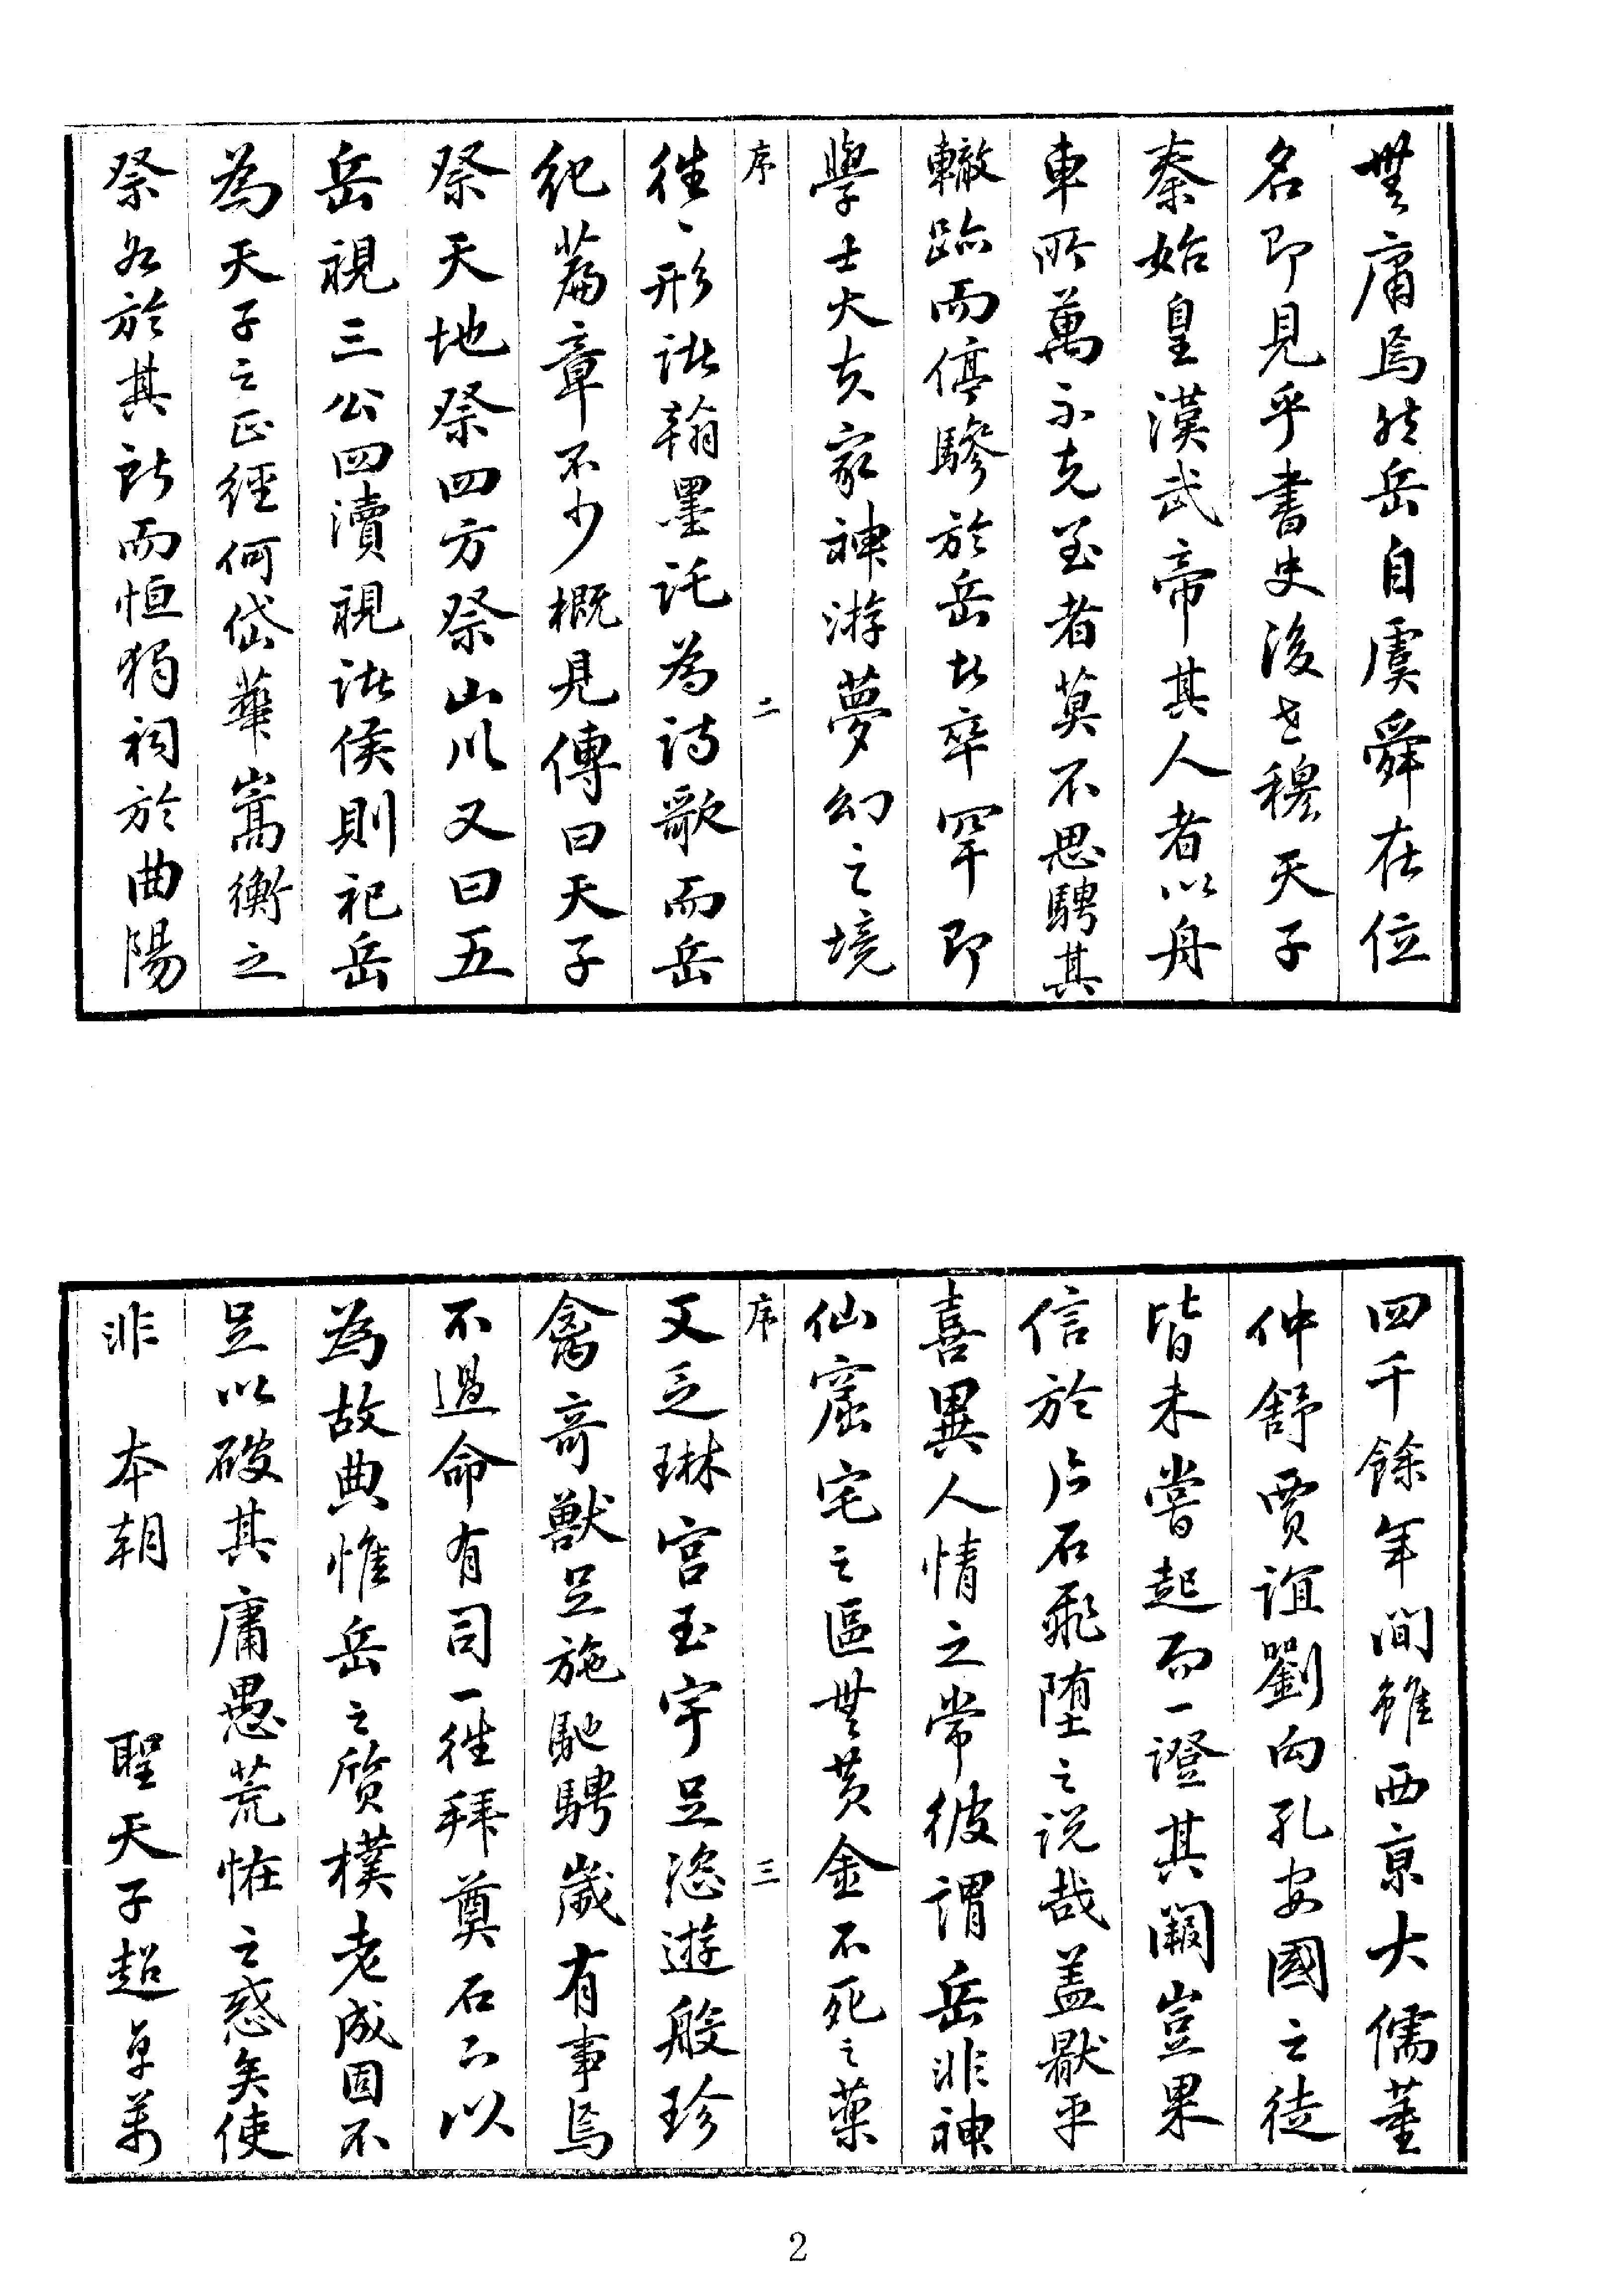 無庸焉然岳自虞舜在位
名即見乎書史後世穆天子
秦始皇漢武帝其人者以舟
車所萬不克至者莫不思騁其
轍跡而停驂於岳故卒罕即
學士大夫家神游夢幻之境
序 二
往〻形諸翰墨託為詩歌而岳
紀篇章不少概見傳曰天子
祭天地祭四方祭山川又曰五
岳視三公四瀆視諸侯則祀岳
為天子之正經何岱華嵩衡之
祭各於其所而恒獨祠於曲陽
四千餘年間雖西京大儒董
仲舒賈誼劉向孔安國之徒
皆未嘗起而一證其闕豈果
信於片石飛墮之說哉蓋厭平
喜異人情之常彼謂岳非神
仙窟宅之區無黃金不死之藥
序 三
又乏琳宮玉宇足恣遊般珍
禽奇獸足施馳騁歲有事焉
不過命有司一往拜奠石亦以
為故典惟岳之質樸老成固不
足以破其庸愚荒怪之惑矣使
非 本朝 聖天子超卓萬
2